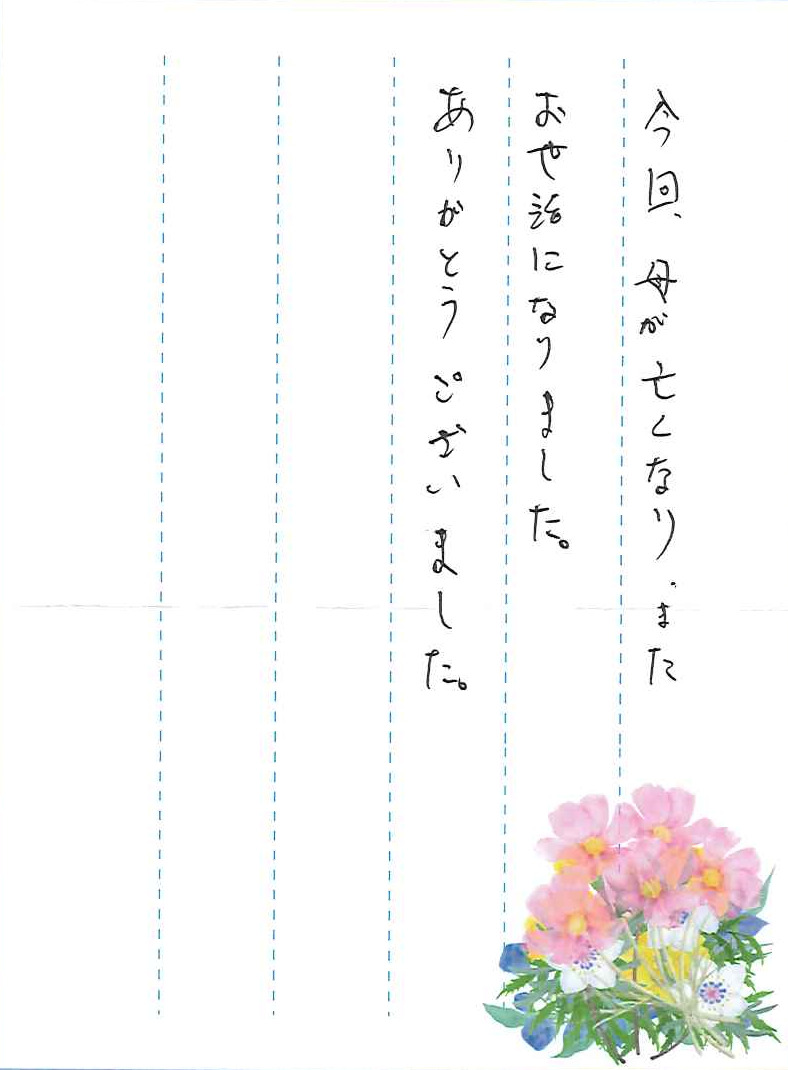 今回、母が亡くなり、また
お世話になりました。
ありがとうございました。